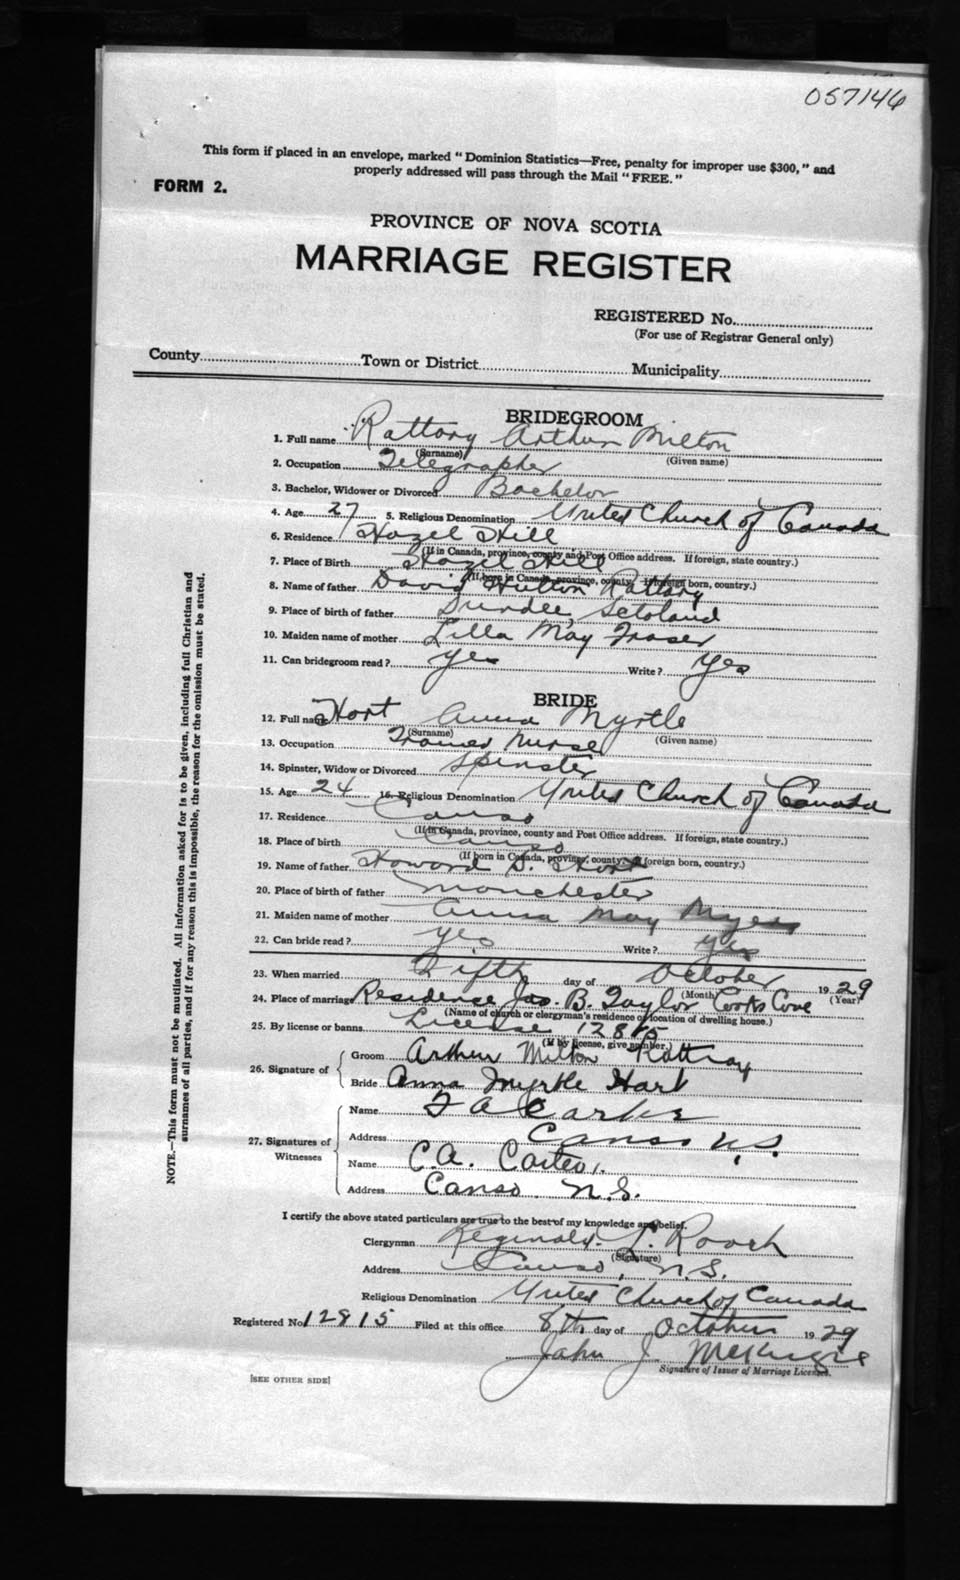 057146
This form if placed in an envelope, marked "Dominion Statistics—Free, penalty for improper use $300," and
properly addressed will pass through the Mail "FREE."
FORM 2.
PROVINCE OF NOVA SCOTIA
MARRIAGE REGISTER
REGISTERED No.
(For use of Registrar General only)
County Town or District Municipality
BRIDEGROOM
1. Full name Rattray Arthur Milton
(Surname) (Given name)
2. Occupation Telegrapher
3. Bachelor, Widower or Divorced Bachelor
4. Age 27 5. Religious Denomination United Church of Canada
6. Residence Hazel Hill
(If in Canada, province, county and Post Office address. If foreign, state country.)
7. Place of Birth Hazel Hill
(If born in Canada, province, county. If foreign born, country.)
8. Name of father David Hutton Rattray
9. Place of birth of father Dundee, Scotland
10. Maiden name of mother Lilla May Fraser
11. Can bridegroom read? yes Write? yes
BRIDE
12. Full name Hart Anna Myrtle
(Surname) (Given name)
13. Occupation Trained Nurse
14. Spinster, Widow or Divorced Spinster
15. Age 24 16. Religious Denomination United Church of Canada
17. Residence Canso
(If in Canada, province, county and Post Office address. If foreign, state country.)
18. Place of birth Canso
(If born in Canada, province, county. If foreign born, country.)
19. Name of father Howard D. Hart
20. Place of birth of father Manchester
21. Maiden name of mother Anna May Myers
22. Can bride read? yes Write? yes
23. When married Fifth day of October 1929
(Month) (Year)
24. Place of marriage Residence Jas. B. Taylor Cooks Cove
(Name of church or clergyman's residence or location of dwelling house.)
25. By license or banns License 12815
(If by license, give number.)
26. Signature of Groom Arthur Milton Rattray
Bride Anna Myrtle Hart
27. Signatures of Witnesses Name F A
Address Canso N.S.
Name C.A. Carter
Address Canso N.S.
I certify the above stated particulars are true to the best of my knowledge and belief.
Clergyman Reginald Roach
(Signature)
Address Canso, N.S.
Religious Denomination United Church of Canada
Registered No 12815 Filed at this office 8th day of October 1929
John J McKenzie
Signature of Issuer of Marriage Licenses.
[SEE OTHER SIDE]
NOTE.—This form must not be mutilated. All information asked for is to be given, including full Christian and
surnames of all parties, and if for any reason this is impossible, the reason for the omission must be stated.